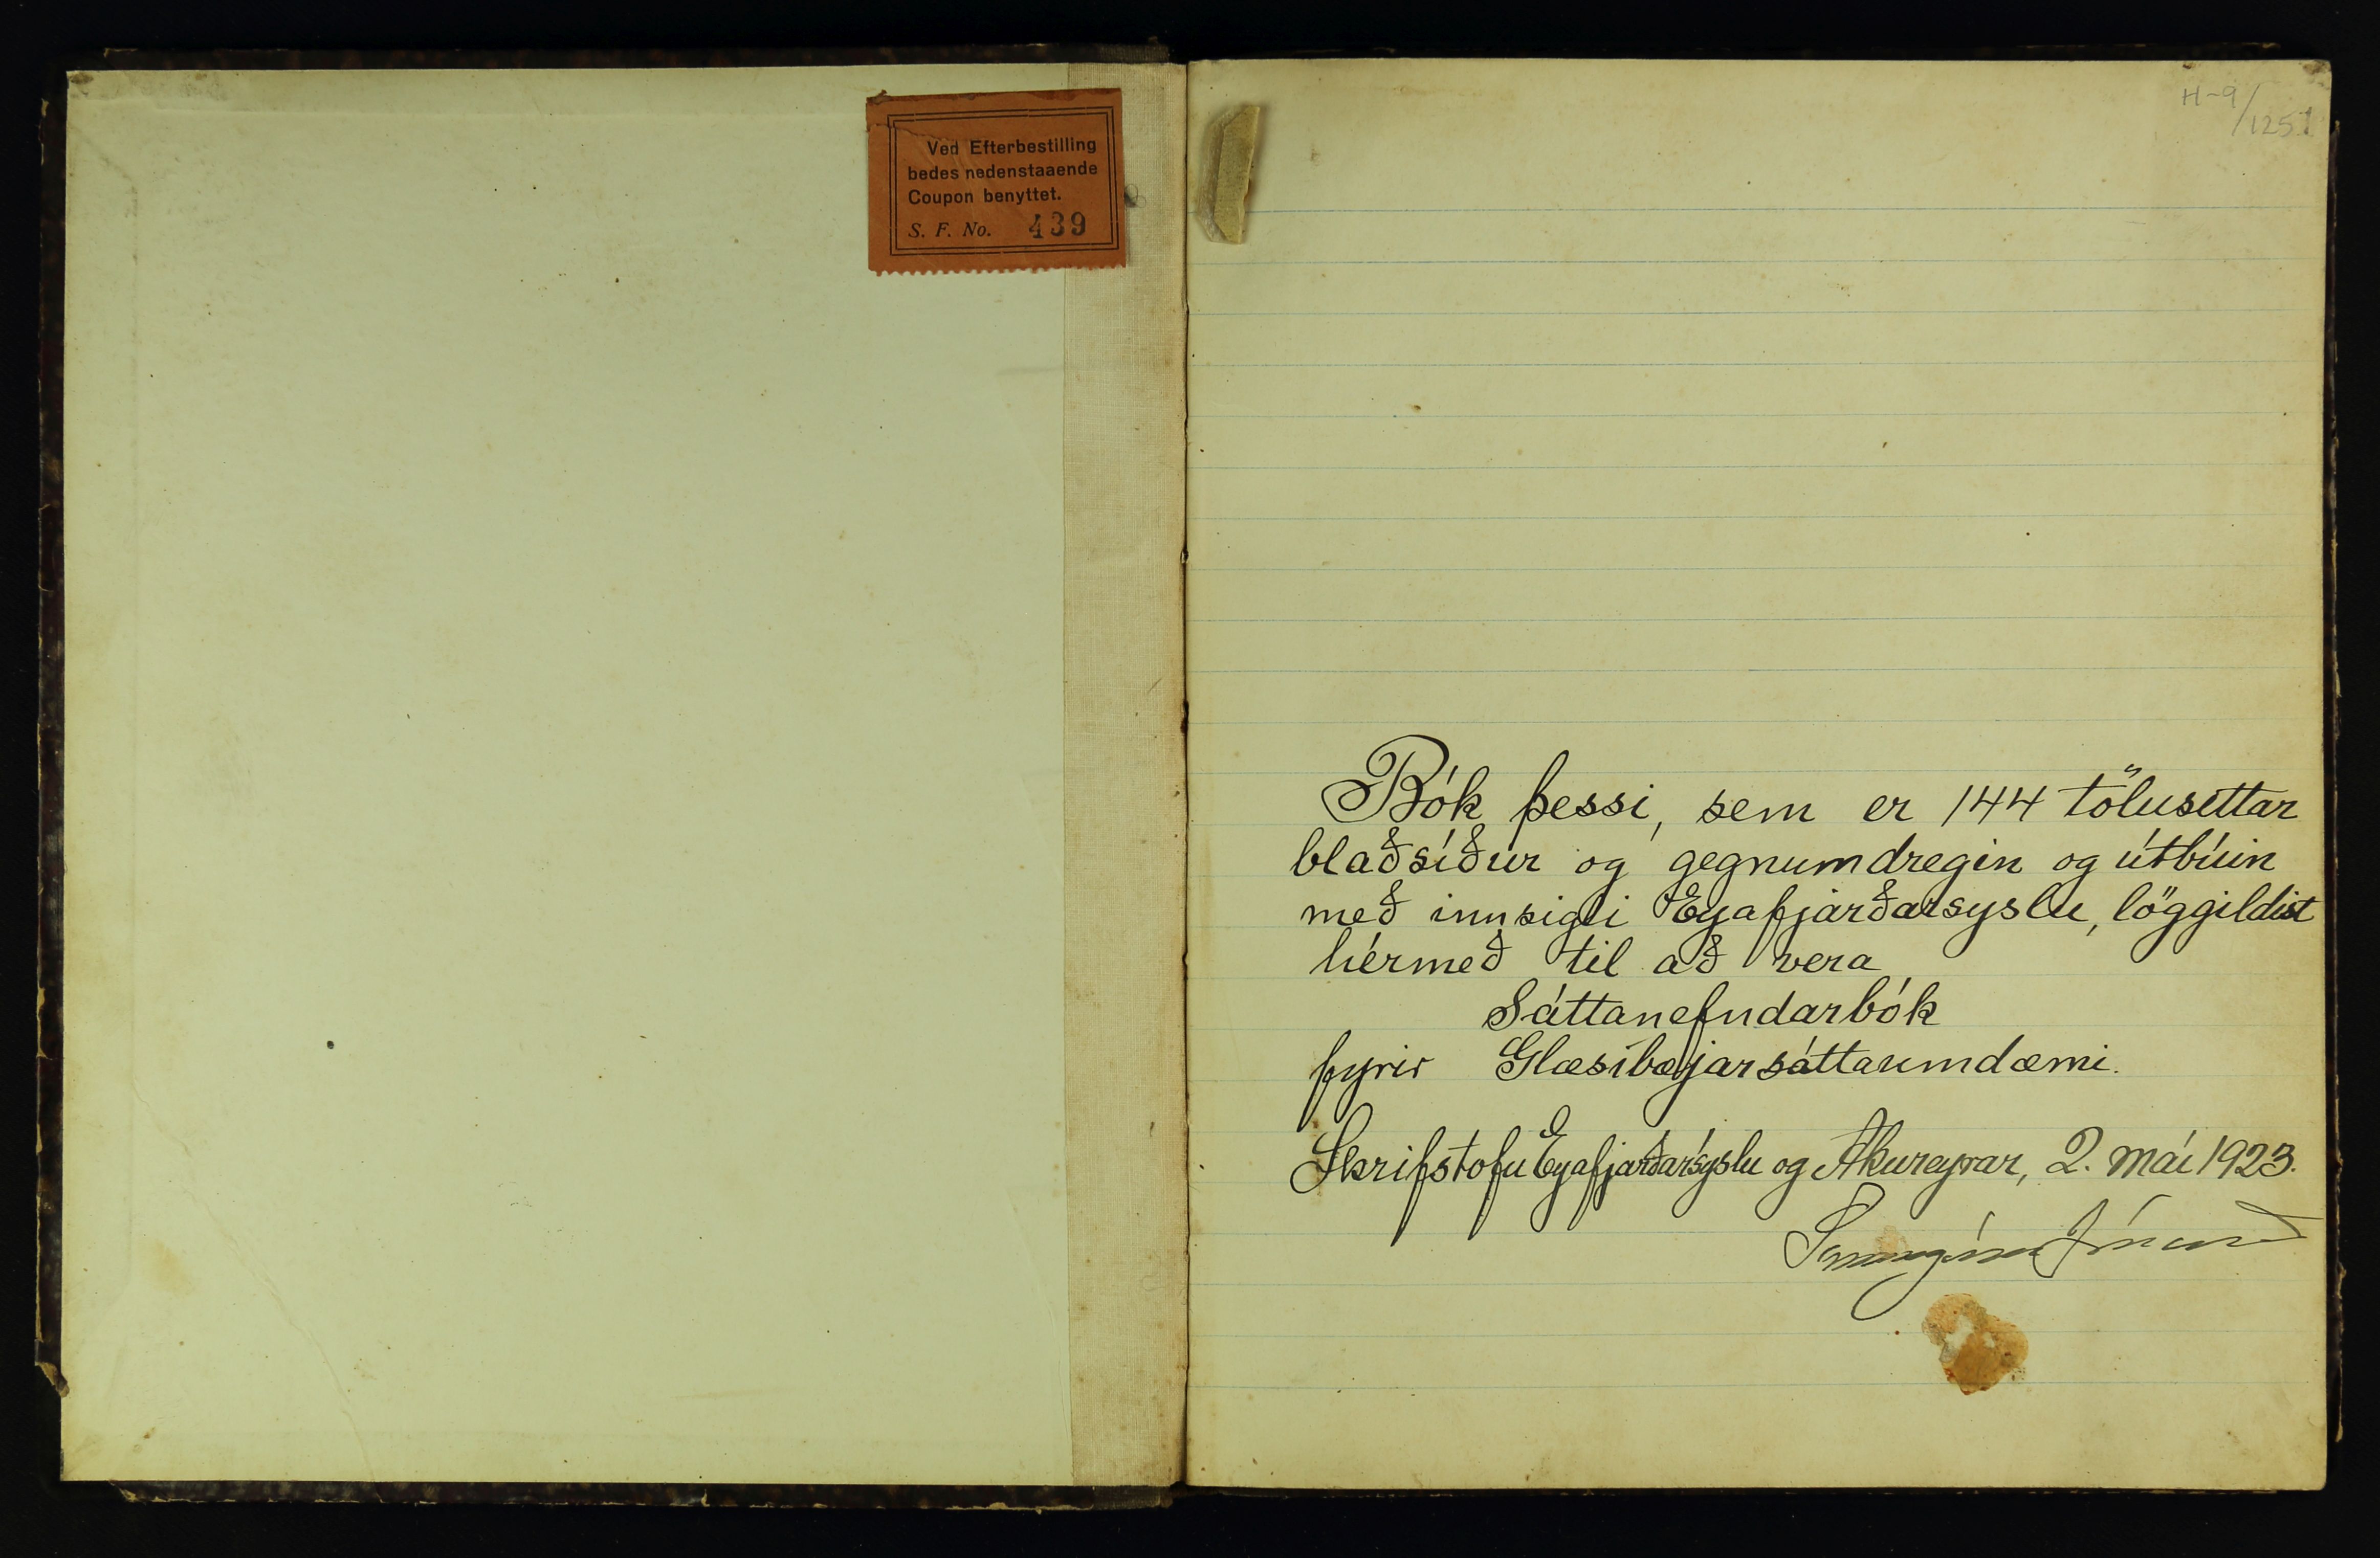 Ved Efterbestilling
bedes nedenstaaende
Coupon benyttet.
S. F. No. 439
H-9/1251
Bók þessi, sem er 144 tölusettar
blaðsíður og gegnumdregin og útbúin
með innsigli Eyafjarðarsyslu, löggildist
hérmeð til að vera
Sáttanefndarbók
fyrir Glæsibæjarsáttaumdæmi.
Skrifstofu Eyafjarðarsýslu og Akureyrar, 2. maí 1923.